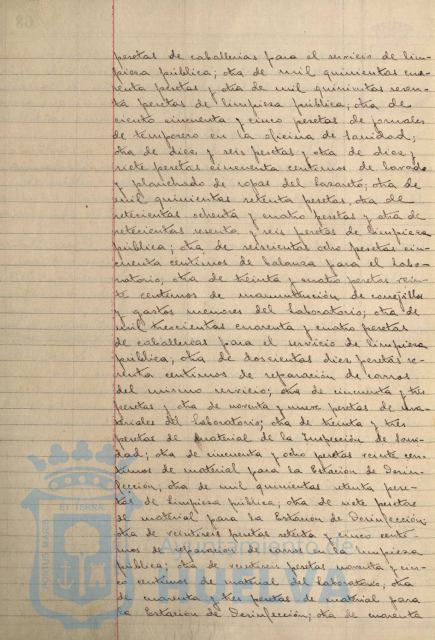 pesetas de caballerias para el servicio de lim-
pieza pública; otra de mil quinientas cua-
renta pesetas y otra de mil quinientas sesen-
ta pesetas de limpieza pública; otra de
ciento cincuenta y cinco pesetas de jornales
de temporero en la oficina de Sanidad;
otra de diez y seis pesetas y otra de diez y
siete pesetas cincuenta centimos de lavado
y planchado de ropas del Lazareto; otra de
mil quinientas setenta pesetas, otra de
setecientas ochenta y cuatro pesetas y otra de
setecientas sesenta y seis pesetas de limpieza
pública; otra de seiscientas ocho pesetas cin-
cuenta centimos de balanza para el Labo-
ratorio; otra de treinta y cuatro pesetas vein-
te centimos de manutención de conejillos
y gastos menores del Laboratorio; otra de
mil trescientas cuarenta y cuatro pesetas
de caballerias para el servicio de limpieza
pública; otra de doscientas diez pesetas se-
tenta centimos de reparación de carros
del mismo servicio; otra de cincuenta y tres
pesetas y otra de noventa y nueve pesetas de ma-
teriales del Laboratorio; otra de treinta y tres
pesetas de material de la Inspección de Sani-
dad; otra de cincuenta y ocho pesetas veinte cen-
timos de material para la Estación de Desin-
fección; otra de mil quinientas setenta pese-
tas de limpieza pública; otra de siete pesetas
de material para la Estación de Desinfección;
otra de veintiseis pesetas setenta y cinco centi-
mos de reparación de carros de la limpieza
pública; otra de veintiseis pesetas noventa y cin-
co centimos de material del Laboratorio, otra
de noventa y tres pesetas de material para
la Estación de Desinfección; otra de noventa